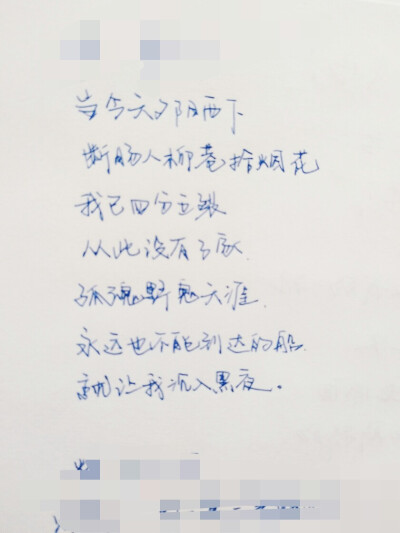 当今天夕阳西下
断肠人柳巷拾烟花
我已四分五裂
从此没有了家
孤魂野鬼天涯
永远也不能到达的船
就让我沉入黑夜。